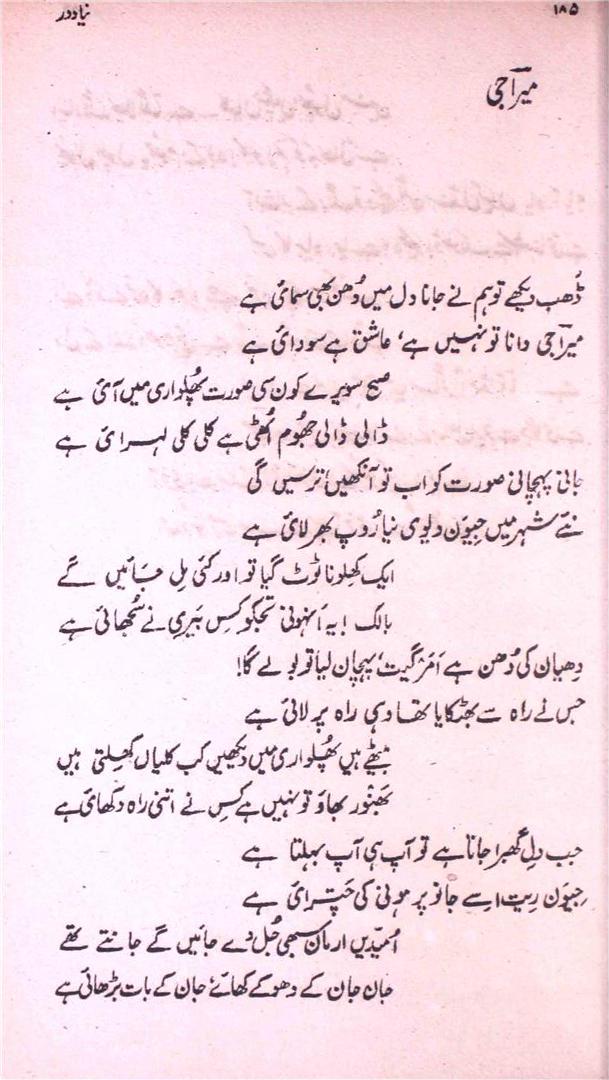 ۱۸۵
نیا دور
میراؔجی
ڈھب دیکھے تو ہم نے جانا دل میں دُھن بھی سمائی ہے
میراؔجی دانا تو نہیں ہے، عاشق ہے سودائی ہے
صبح سویرے کون سی صورت پھُلواری میں آئی ہے
ڈالی ڈالی جھُوم اُٹھی ہے کلی کلی لہرائی ہے
جانی پہچانی صورت کو اب تو آنکھیں ترسیں گی
نئے شہر میں جیوَن دیوی نیا رُوپ بھر لائی ہے
ایک کھلونا ٹوٹ گیا تو اور کئی مِل جائیں گے
بالک! یہ اَنہونی تجکو کِس بَیری نے سُجھائی ہے
دھیان کی دُھن ہے اَمَر گیت، پہچان لیا تو بولے گا!
جس نے راہ سے بھٹکایا تھا وہی راہ پر لائی ہے
بیٹھے ہیں پھُلواری میں دیکھیں کب کلیاں کھِلتی ہیں
بھَنْور بھاؤ تو نہیں ہے کِس نے اتنی راہ دکھائی ہے
جب دل گھبرا جاتا ہے تو آپ ہی آپ بہلتا ہے
جیوَن رِیت اسے جانو پر ہونی کی چَتَرائی ہے
اُمیّدیں ارمان سبھی جُل دے جائیں گے جانتے تھے
جان جان کے دھوکے کھائے جان کے بات بڑھائی ہے